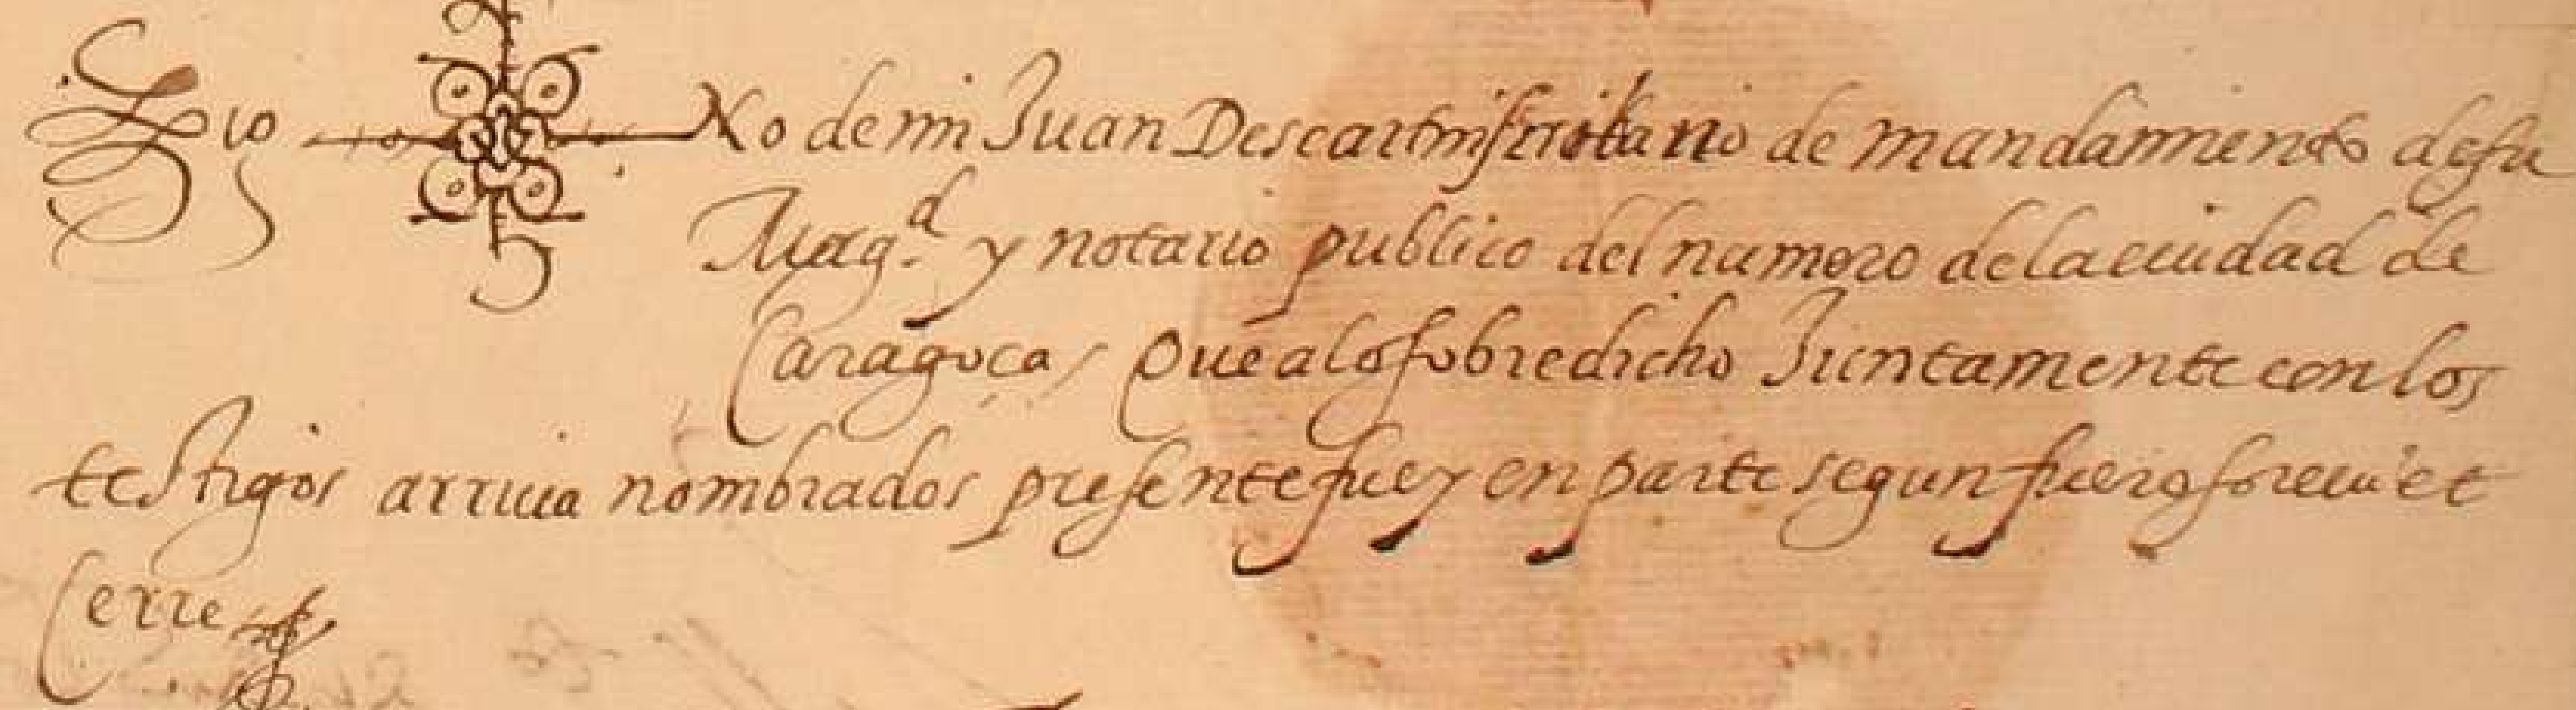 Sig no de mi Juan Descartin escribano de mandamiento de su
Mag.d y notario publico del numero de la ciudad de
Caragoça, Que a lo sobredicho Juntamente con los
testigos arriua nombrados presente fue y en parte segun fuero screui et
Cerre